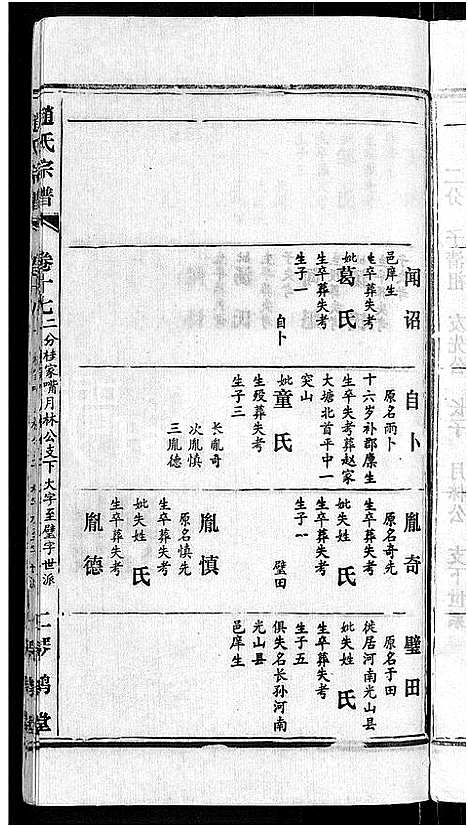 闻诏
邑庠生
生卒葬失考
妣葛氏
生卒葬失考
生子一
自卜
自卜
原名雨卜
十六岁补郡廪生
生卒失考葬赵家
大塘北首平中一
突山
妣童氏
生殁葬失考
生子三
长胤奇
次胤慎
三胤德
胤奇
原名奇先
生卒葬失考
妣失姓氏
生卒葬失考
生子一
璧田
胤慎
原名慎先
生卒葬失考
妣失姓氏
生卒葬失考
胤德
璧田
原名于田
徙居河南光山县
妣失姓氏
生卒葬失考
生子五
俱失名长孙河南
光山县
邑庠生
趙氏宗譜
卷十七
二分桂家嘴月林公支下大字至璧字世派
二琴鹤堂